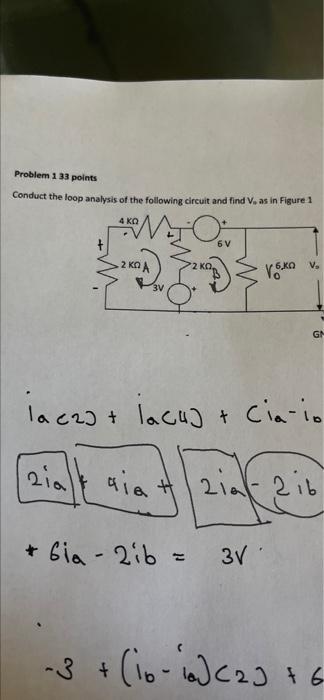 Problem 1 33 points
Conduct the loop analysis of the following circuit and find Vo as in Figure 1
4 KΩ
- +
6 V
+
2 KΩ A
2 KΩ B
Vo 6 KΩ Vo
-
3V +
-
ia(2) + ia(4) + (ia-ib
2ia + 4ia + 2ia - 2ib
+ 6ia - 2ib = 3V
-3 + (ib - ia)(2) + 6